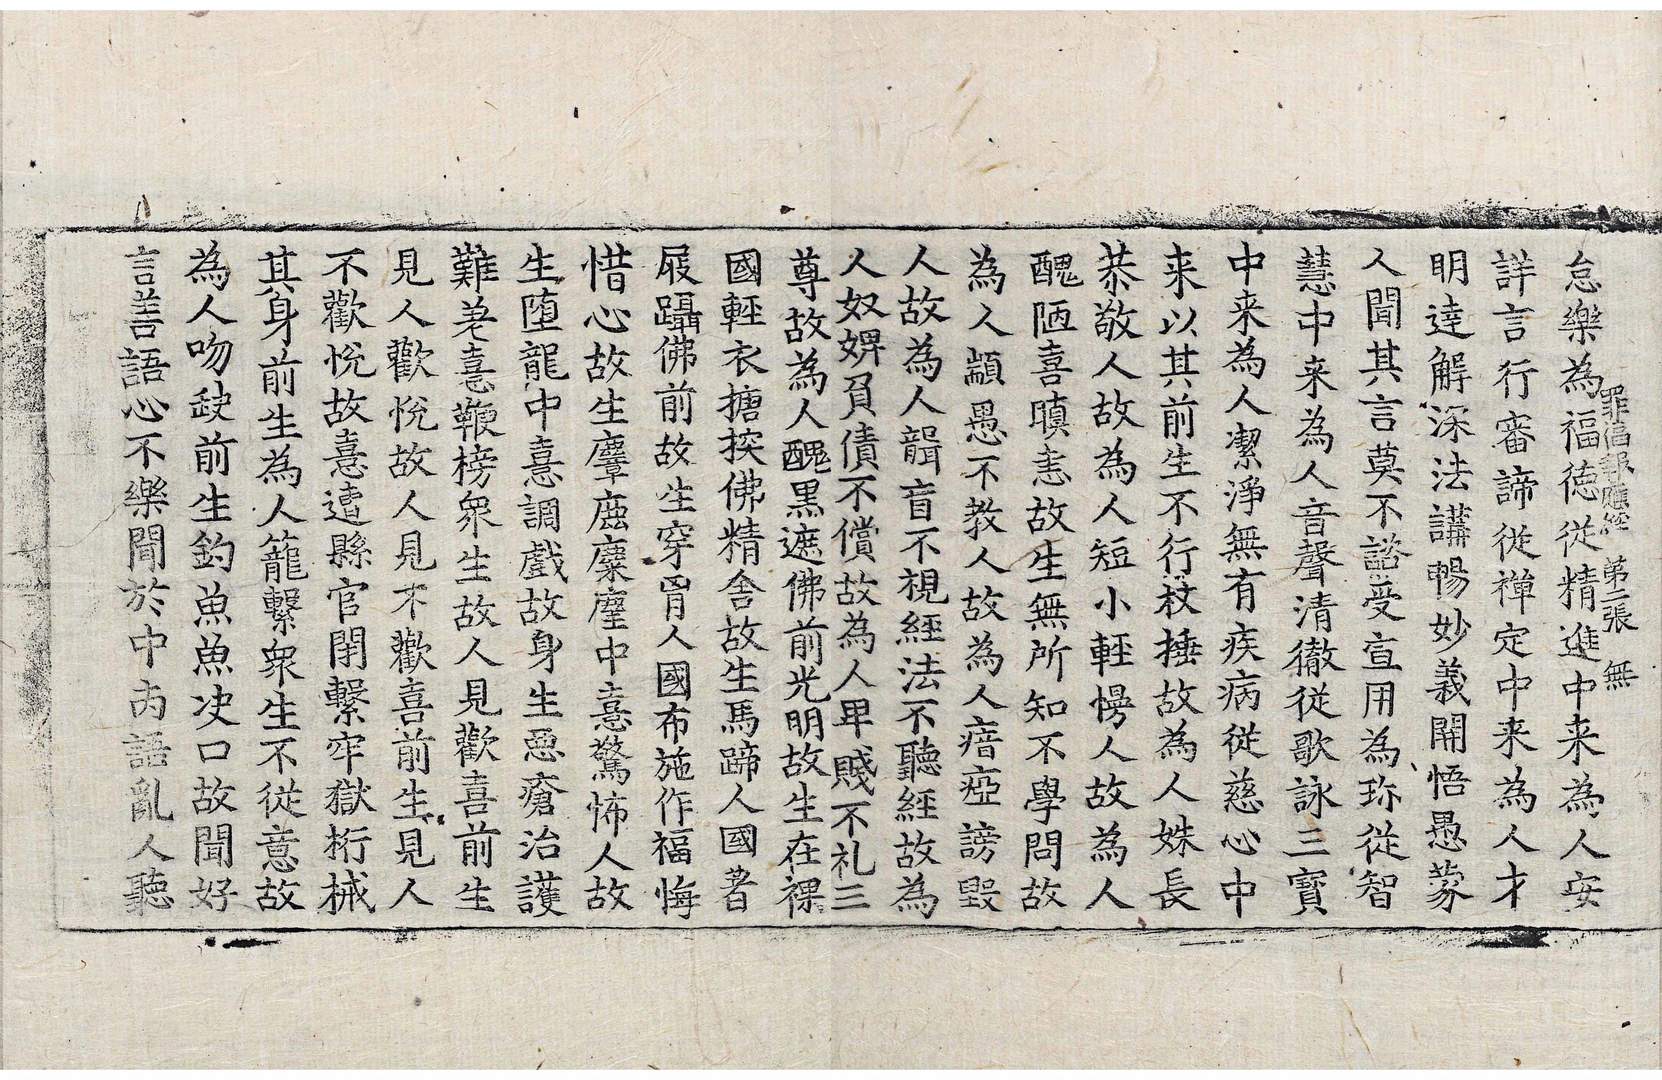 怠樂為福徳従精進中来為人安
罪福報應経 第二張 無
詳言行審諦従禅定中来為人才
明達解深法講暢妙義開悟愚蒙
人聞其言莫不諮受宣用為珎従智
慧中来為人音聲清徹従歌詠三寶
中来為人潔淨無有疾病従慈心中
来以其前生不行杖捶故為人姝長
恭敬人故為人短小輕慢人故為人
醜陋喜嗔恚故生無所知不學問故
為人顓愚不教人故為人瘖瘂謗毀
人故為人聾盲不視經法不聽經故為
人奴婢負債不償故為人卑賤不礼三
尊故為人醜黒遮佛前光明故生在裸
國輕衣搪揬佛精舍故生馬蹄人國著
屐躡佛前故生穿胷人國布施作福悔
惜心故生麞鹿麋麈中憙驚怖人故
生墮龍中憙調戲故身生惡瘡治護
難差憙鞭榜衆生故人見歡喜前生
見人歡悅故人見不歡喜前生見人
不歡悅故憙遭縣官閉繫牢獄桁械
其身前生為人籠繫衆生不從意故
為人吻缺前生釣魚魚决口故聞好
言善語心不樂聞於中兩語亂人聽